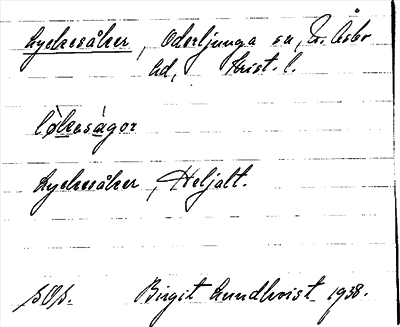 Lyckesåker, Oderljunga sn, N. Åsbo
hd, Krist. l.
lökasågor
Lyckesåker, Heljalt.
SOS. Birgit Lundkvist 1938.